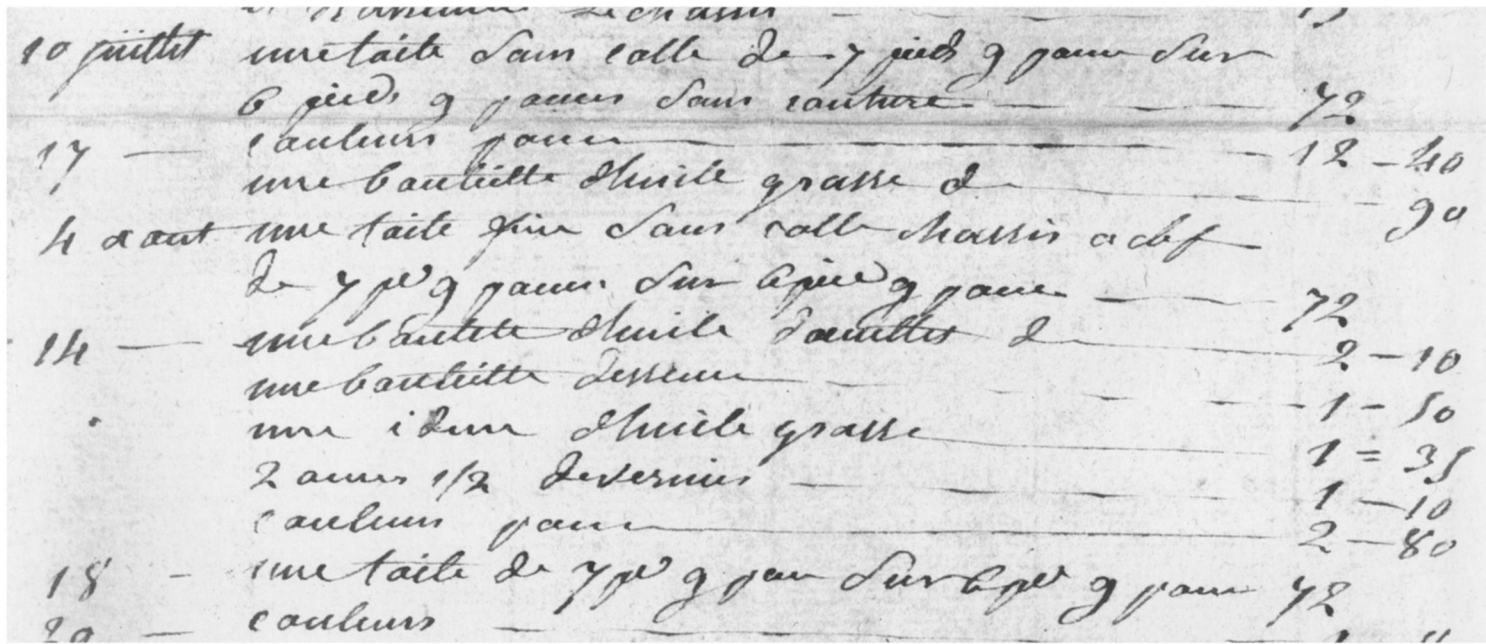 10 juillet une toile sans colle de 7 pieds 9 pouces sur
6 pieds 9 pouces sans couture 72
17 — couleurs pour 12 - 40
une bouteille d'huile grasse d - 90
4 aout une toile fine sans colle chassis a clef
de 7 pds 9 pouces sur 6 pieds 9 pouce 72
14 — une bouteille d'huile d'œillette d 2 - 10
une bouteille dessence 1 - 50
une idem d'huile grasse 1 = 35
2 onces 1/2 de vernis 1 - 10
couleurs pour 2 - 80
18 - une toile de 7 pds 9 pou sur 6 pds 9 pouce 72
20 — couleurs